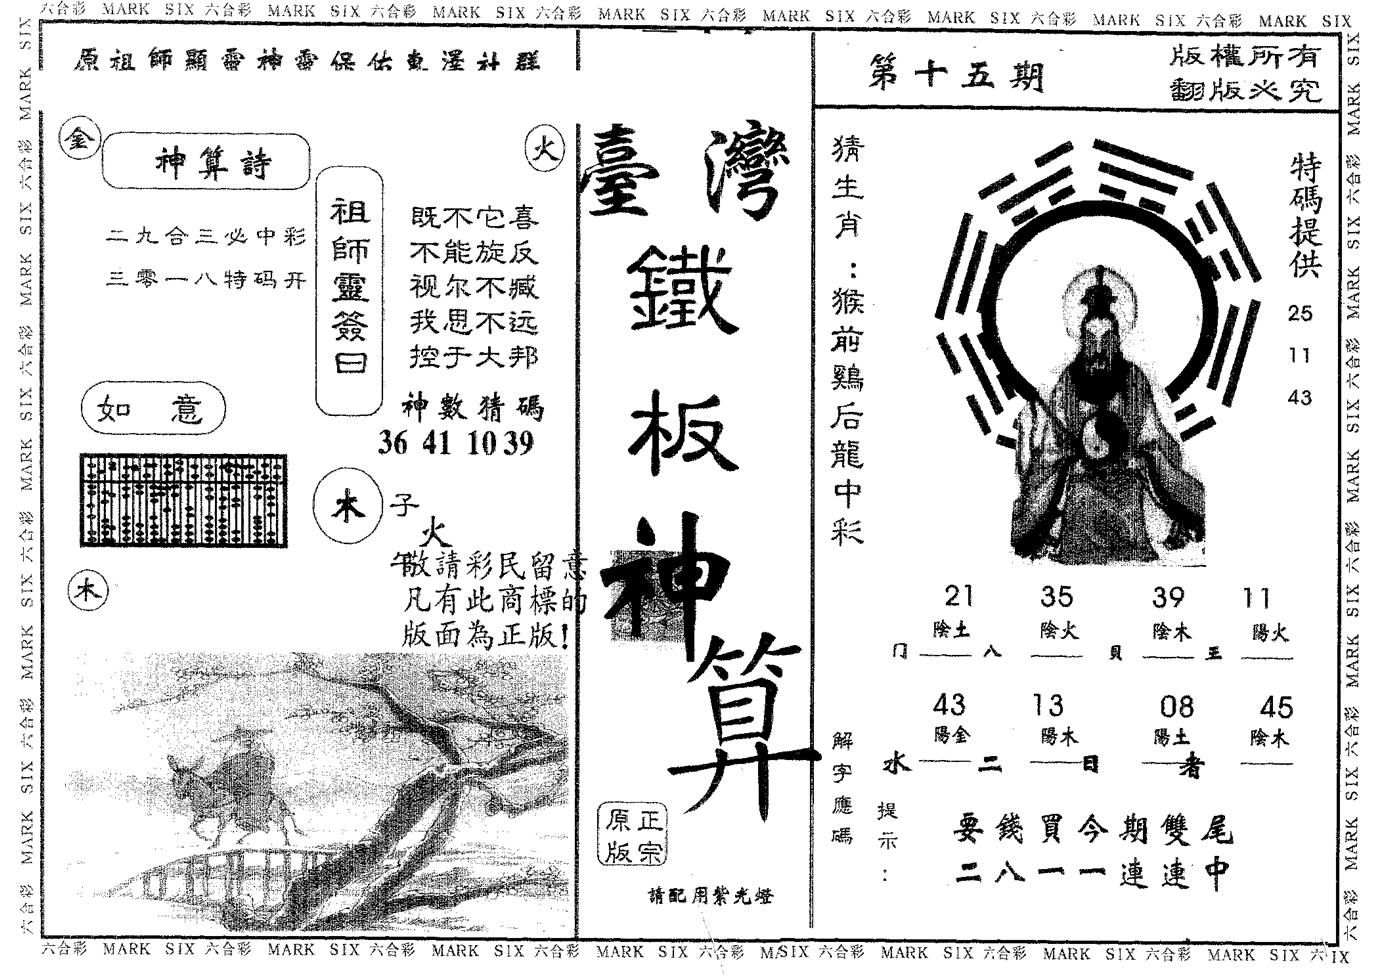 六合彩 MARK SIX 六合彩 MARK SIX 六合彩 MARK SIX 六合彩 MARK SIX 六合彩 MARK SIX 六合彩 MARK SIX 六合彩 MARK SIX 六合彩 MARK SIX
原祖師顯靈神靈保佑東澤社群
金
神算詩
火
二九合三必中彩
三零一八特码开
祖師靈簽曰
既不它喜
不能旋反
视尔不臧
我思不远
控于大邦
如意
神數猜碼
36 41 10 39
木
子
火
午
木
敬請彩民留意
凡有此商標的
版面為正版!
臺灣
鐵
板
神
算
正宗
原版
請配用紫光燈
第十五期
版權所有
翻版必究
猜生肖:猴前鷄后龍中彩
特碼提供
25
11
43
21 35 39 11
陰土 陰火 陰木 陽火
门 八 貝 王
43 13 08 45
陽金 陽木 陽土 陰木
水 二 日 者
解字應碼
提示:
要錢買今期雙尾
二八一一連連中
六合彩 MARK SIX 六合彩 MARK SIX 六合彩 MARK SIX 六合彩 MARK SIX 六合彩 MARK SIX 六合彩 MARK SIX 六合彩 MARK SIX